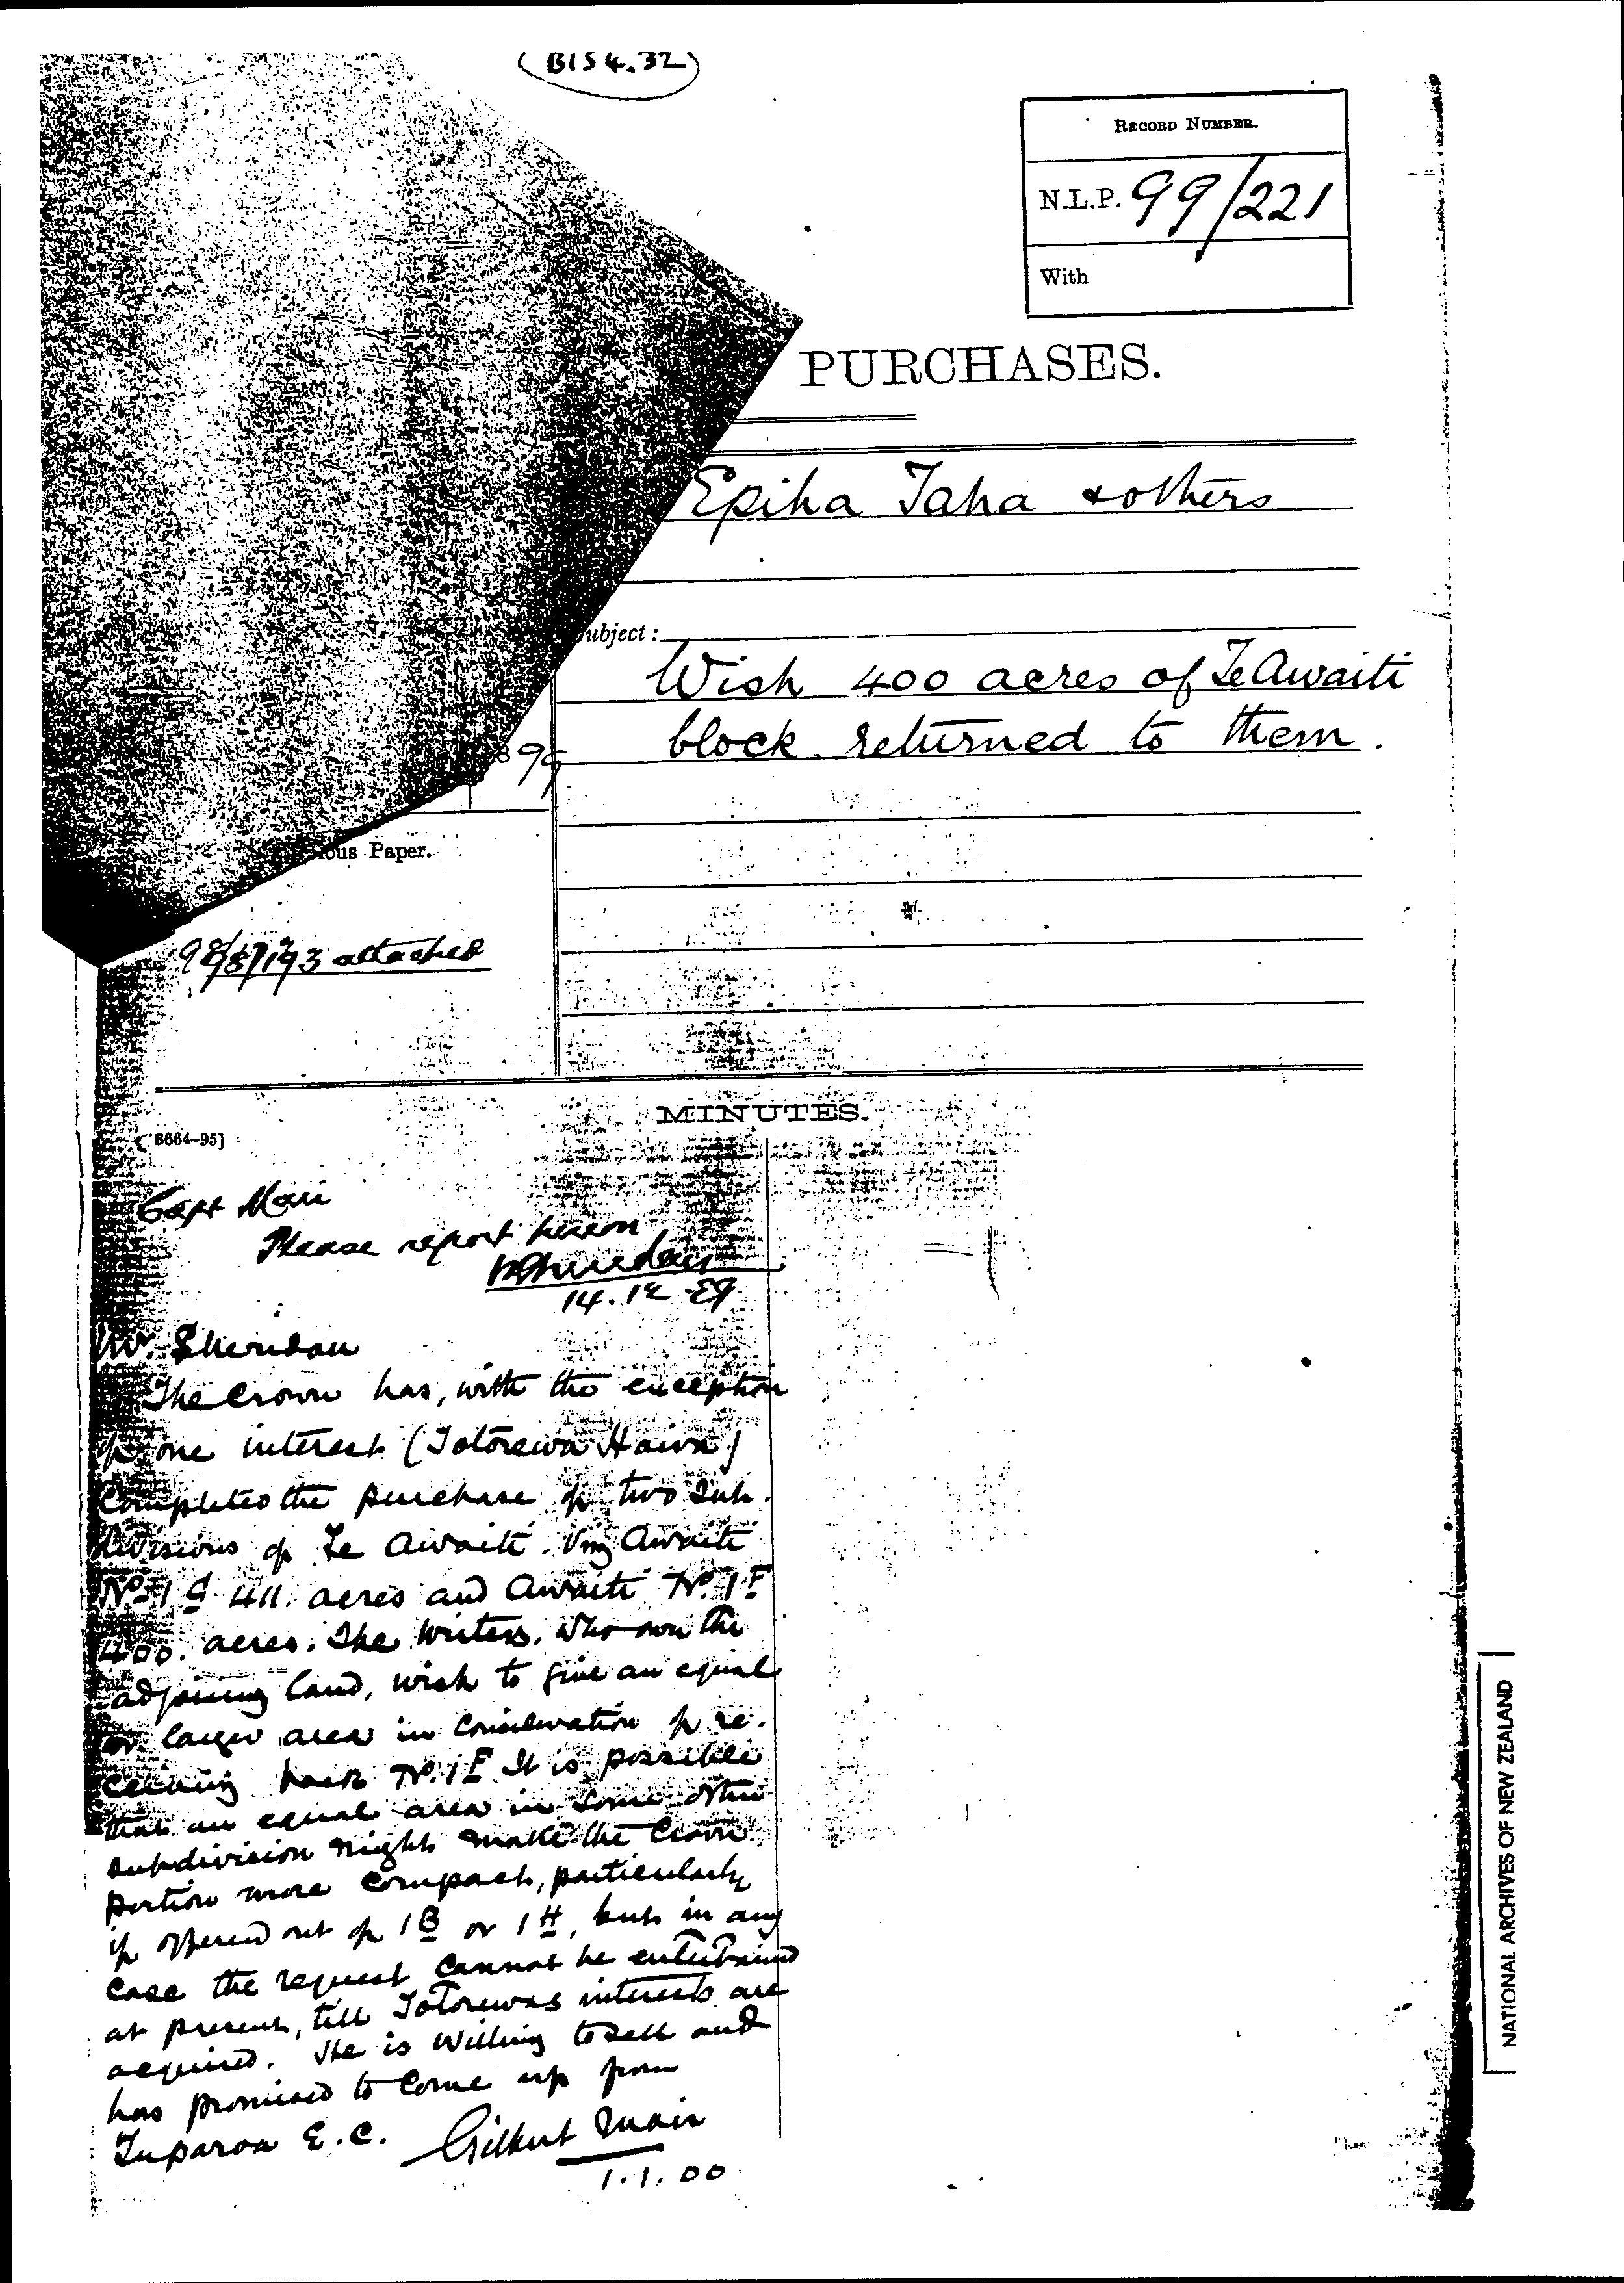 (B154.32)
RECORD NUMBER.
N.L.P. 99/221
With
PURCHASES.
Epiha Taha & others
ubject:
Wish 400 acres of Te Awaiti
block returned to them.
899
ious Paper.
attached
MINUTES.
6664–95]
Capt Mair
Please report hereon
14.12.99
Mr. Sheridan
The Crown has, with the exception
of one interest (Totorewa Hawa)
Completed the purchase of two Sub.
divisions of Te Awaiti. Viz Awaiti
No. 1 411. acres and Awaiti No. 1F
400. acres. The writers, who own the
adjoining land, wish to give an equal
or larger area in consideration of re.
ceiving back No. 1F It is possible
that an equal area in some other
subdivision might make the Crown
portion more compact, particularly
if offered out of 1B or 1H, but in any
case the request cannot be entertained
at present, till Totorewas interests are
acquired. He is willing to sell and
has promised to come up from
Tuparoa E.C. Gilbert Mair
1.1.00
NATIONAL ARCHIVES OF NEW ZEALAND